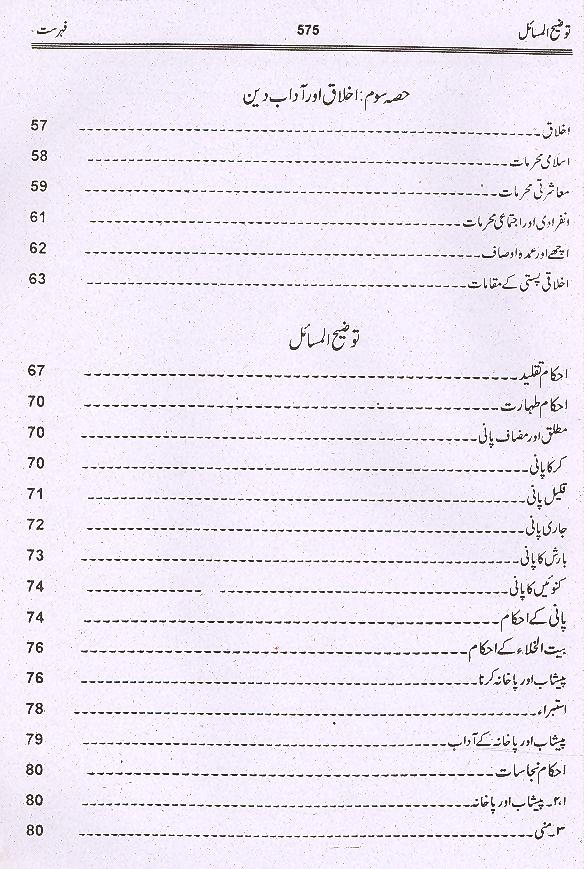 توضیح المسائل 575 فہرست
حصہ سوم: اخلاق اور آداب دین
اخلاق 57
اسلامی محرمات 58
معاشرتی محرمات 59
انفرادی اور اجتماعی محرمات 61
اچھے اور عمدہ اوصاف 62
اخلاقی پستی کے مقامات 63
توضیح المسائل
احکام تقلید 67
احکام طہارت 70
مطلق اور مضاف پانی 70
کر کا پانی 70
قلیل پانی 71
جاری پانی 72
بارش کا پانی 73
کنوئیں کا پانی 74
پانی کے احکام 74
بیت الخلاء کے احکام 76
پیشاب اور پاخانہ کرنا 76
استبراء 78
پیشاب اور پاخانہ کے آداب 79
احکام نجاسات 80
۲،۱۔ پیشاب اور پاخانہ 80
۳۔ منی 80